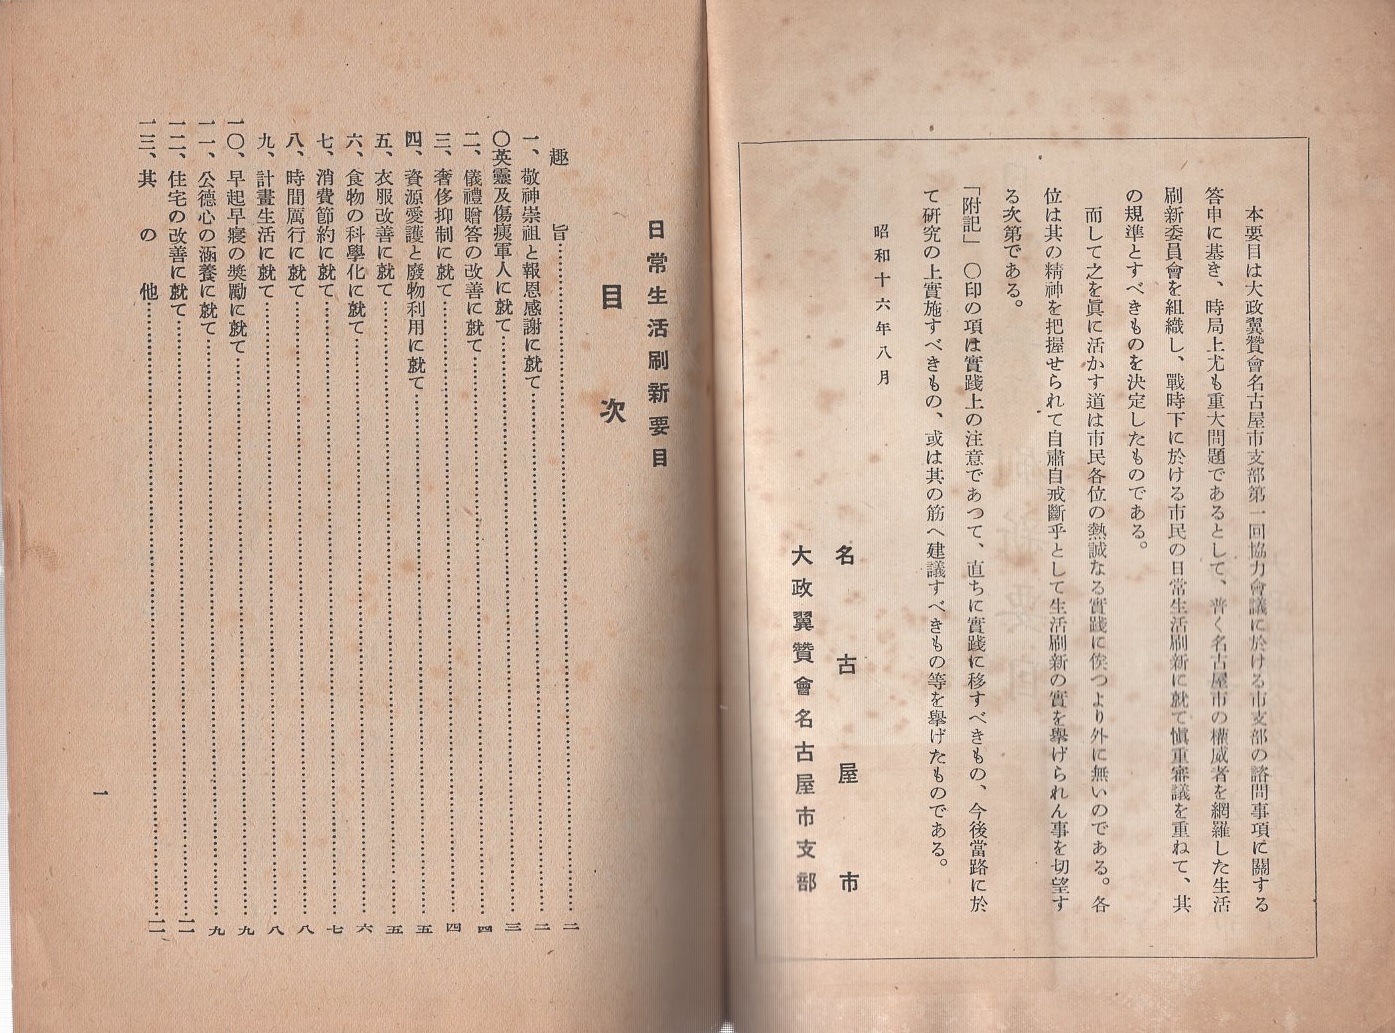 本要目は大政翼贊會名古屋市支部第一回協力會議に於ける市支部の諮問事項に關する
答申に基き、時局上尤も重大問題であるとして、普く名古屋市の權威者を網羅した生活
刷新委員會を組織し、戰時下に於ける市民の日常生活刷新に就て愼重審議を重ねて、其
の規準とすべきものを決定したものである。
而して之を眞に活かす道は市民各位の熱誠なる實践に俟つより外に無いのである。各
位は其の精神を把握せられて自肅自戒斷乎として生活刷新の實を擧げられん事を切望す
る次第である。
「附記」　〇印の項は實踐上の注意であつて、直ちに實踐に移すべきもの、今後當路に於
て硏究の上實施すべきもの、或は其の筋へ建議すべきもの等を擧げたものである。
昭和十六年八月
名古屋市
大政翼贊會名古屋市支部
日常生活刷新要目
目次
趣旨……二
一、敬神崇祖と報恩感謝に就て……二
〇英靈及傷痍軍人に就て……三
二、儀禮贈答の改善に就て……四
三、奢侈抑制に就て……四
四、資源愛護と廢物利用に就て……五
五、衣服改善に就て……五
六、食物の科學化に就て……六
七、消費節約に就て……七
八、時間厲行に就て……八
九、計畫生活に就て……八
一〇、早起早寢の奬勵に就て……九
一一、公德心の涵養に就て……九
一二、住宅の改善に就て……一一
一三、其の他……一一
一